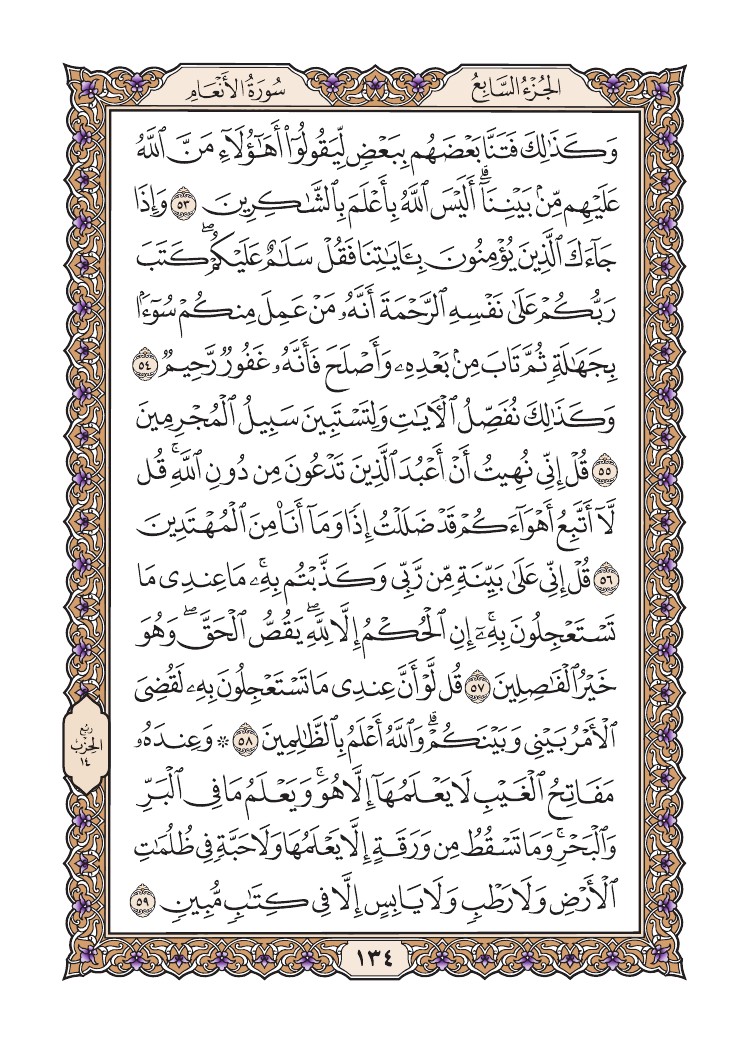 الجُزْءُ السَّابِعُ
سُورَةُ الأَنْعَامِ
وَكَذَٰلِكَ فَتَنَّا بَعْضَهُم بِبَعْضٍ لِّيَقُولُوٓا۟ أَهَـٰٓؤُلَآءِ مَنَّ ٱللَّهُ
عَلَيْهِم مِّنۢ بَيْنِنَآ ۗ أَلَيْسَ ٱللَّهُ بِأَعْلَمَ بِٱلشَّـٰكِرِينَ ٥٣ وَإِذَا
جَآءَكَ ٱلَّذِينَ يُؤْمِنُونَ بِـَٔايَـٰتِنَا فَقُلْ سَلَـٰمٌ عَلَيْكُمْ ۖ كَتَبَ
رَبُّكُمْ عَلَىٰ نَفْسِهِ ٱلرَّحْمَةَ أَنَّهُۥ مَنْ عَمِلَ مِنكُمْ سُوٓءًۢا
بِجَهَـٰلَةٍ ثُمَّ تَابَ مِنۢ بَعْدِهِۦ وَأَصْلَحَ فَأَنَّهُۥ غَفُورٌ رَّحِيمٌ ٥٤
وَكَذَٰلِكَ نُفَصِّلُ ٱلْـَٔايَـٰتِ وَلِتَسْتَبِينَ سَبِيلُ ٱلْمُجْرِمِينَ
٥٥ قُلْ إِنِّى نُهِيتُ أَنْ أَعْبُدَ ٱلَّذِينَ تَدْعُونَ مِن دُونِ ٱللَّهِ ۚ قُل
لَّآ أَتَّبِعُ أَهْوَآءَكُمْ قَدْ ضَلَلْتُ إِذًا وَمَآ أَنَا۠ مِنَ ٱلْمُهْتَدِينَ
٥٦ قُلْ إِنِّى عَلَىٰ بَيِّنَةٍ مِّن رَّبِّى وَكَذَّبْتُم بِهِۦ ۚ مَا عِندِى مَا
تَسْتَعْجِلُونَ بِهِۦٓ ۚ إِنِ ٱلْحُكْمُ إِلَّا لِلَّهِ ۖ يَقُصُّ ٱلْحَقَّ ۖ وَهُوَ
خَيْرُ ٱلْفَـٰصِلِينَ ٥٧ قُل لَّوْ أَنَّ عِندِى مَا تَسْتَعْجِلُونَ بِهِۦ لَقُضِىَ
ٱلْأَمْرُ بَيْنِى وَبَيْنَكُمْ ۗ وَٱللَّهُ أَعْلَمُ بِٱلظَّـٰلِمِينَ ٥٨ ۞ وَعِندَهُۥ
مَفَاتِحُ ٱلْغَيْبِ لَا يَعْلَمُهَآ إِلَّا هُوَ ۚ وَيَعْلَمُ مَا فِى ٱلْبَرِّ
وَٱلْبَحْرِ ۚ وَمَا تَسْقُطُ مِن وَرَقَةٍ إِلَّا يَعْلَمُهَا وَلَا حَبَّةٍ فِى ظُلُمَـٰتِ
ٱلْأَرْضِ وَلَا رَطْبٍ وَلَا يَابِسٍ إِلَّا فِى كِتَـٰبٍ مُّبِينٍ ٥٩
رُبُع
الحِزْب
١٤
١٣٤